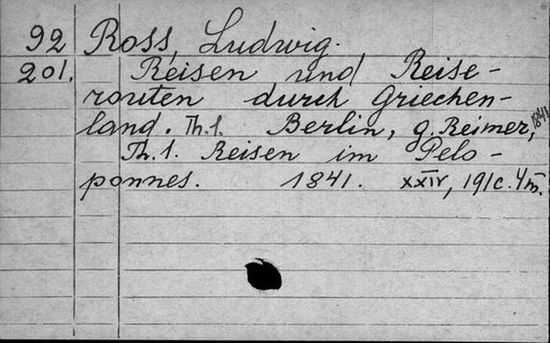 92 Ross, Ludwig.
201. Reisen und Reise-
routen durch Griechen-
land. Th.1. Berlin, G. Reimer, 1841
Th. 1. Reisen im Pelo-
ponnes. 1841. XXIV, 191 c. 4 т.